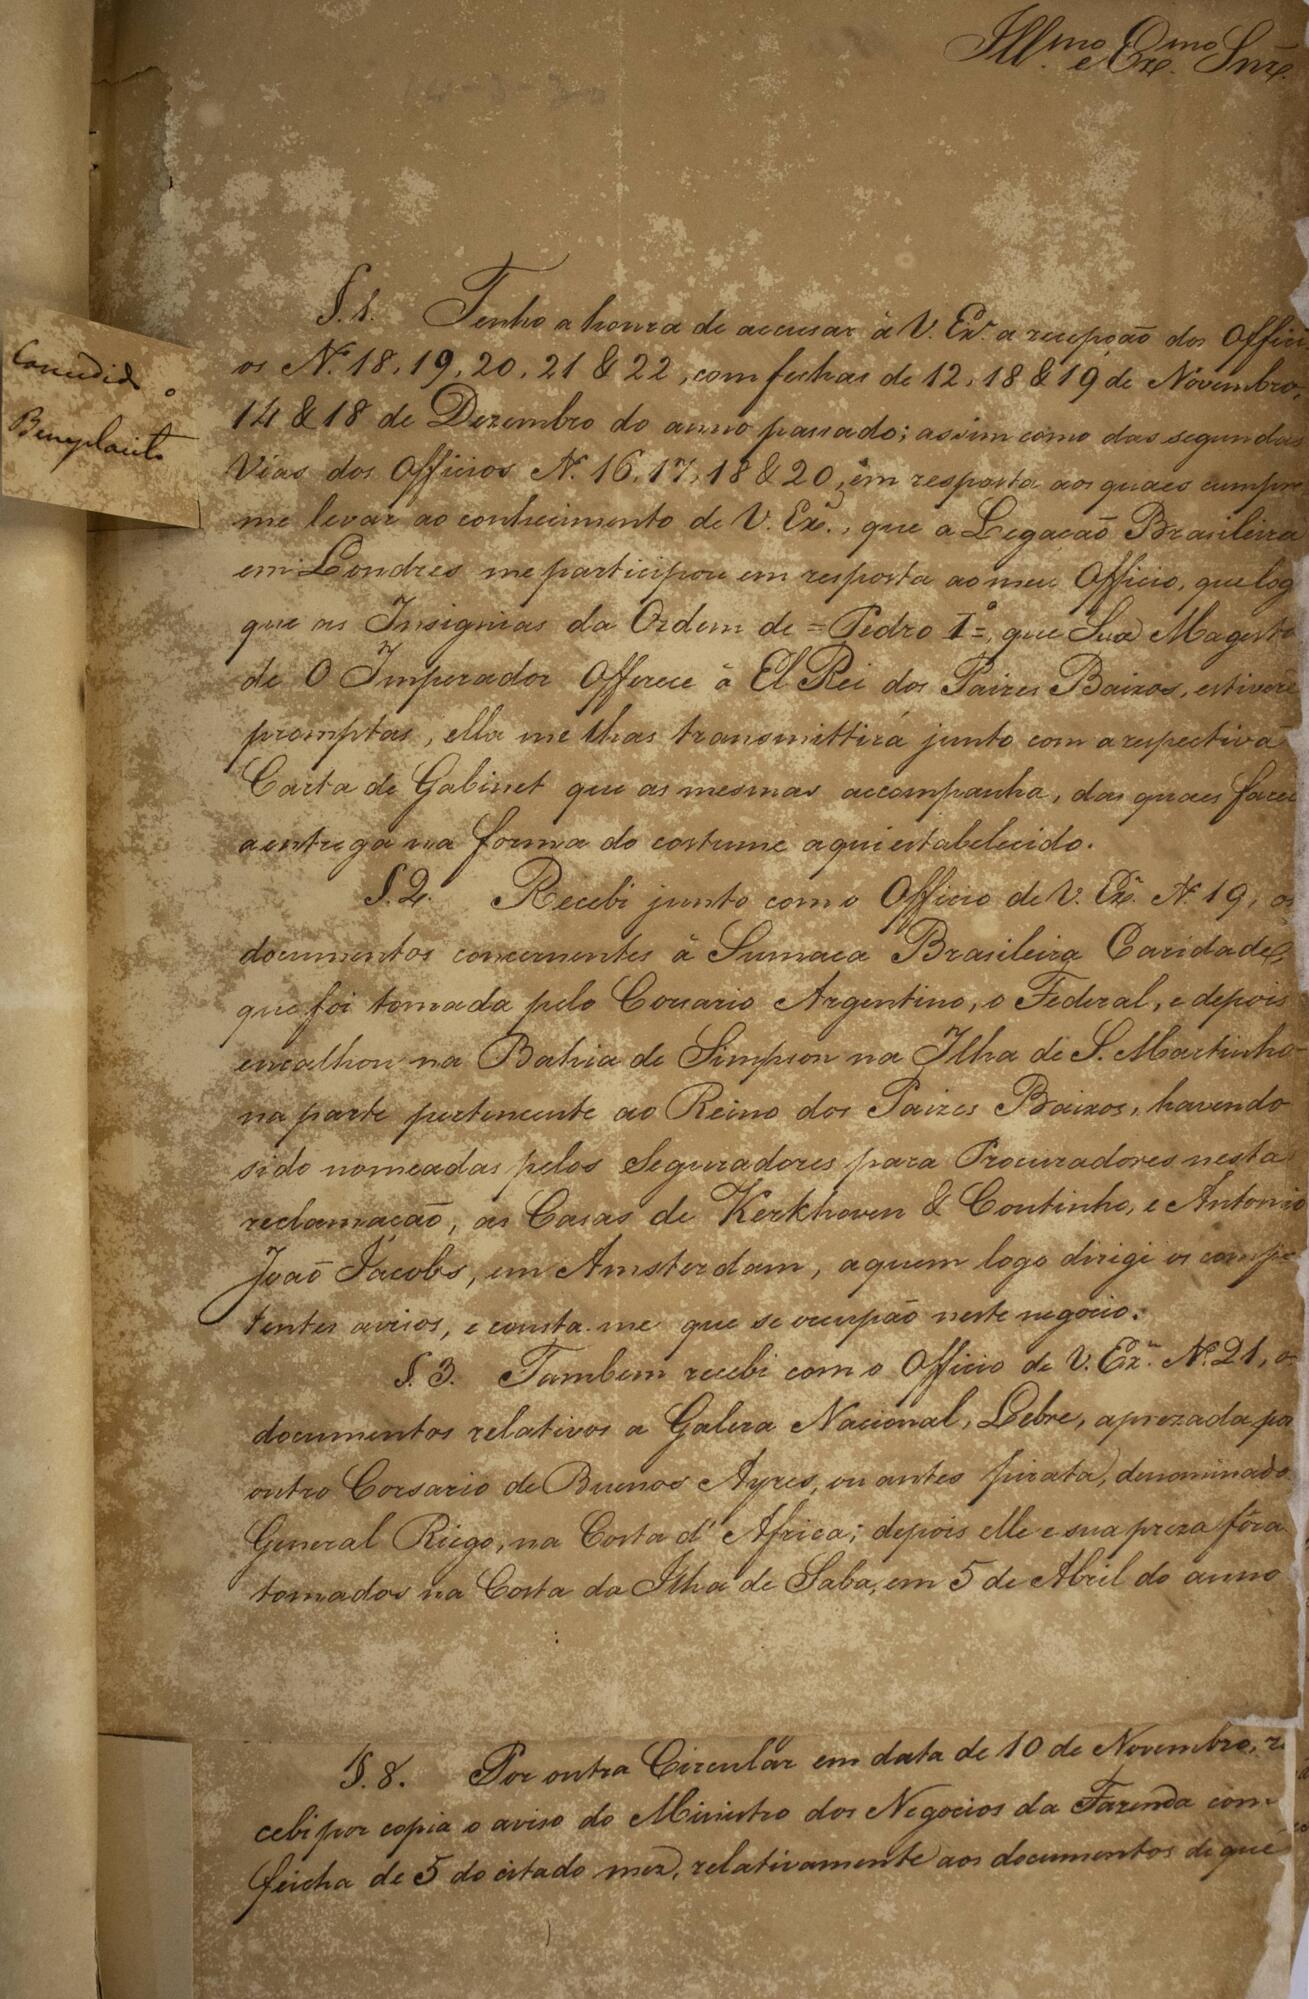 Ill.mo e Ex.mo Snr.
§. 1. Tenho a honra de accusar à V. Ex.a a recepção dos Offici
os N.os 18, 19, 20, 21 & 22, com fechas de 12, 18 & 19 de Novembro,
14 & 18 de Dezembro do anno passado; assim como das segundas
Vias dos Officios N.os 16, 17, 18 & 20, em resposta aos quaes cumpre
me levar ao conhecimento de V. Ex.a, que a Legação Brasileira
em Londres me participou em resposta ao meu Officio, que log
que as Insignias da Ordem de = Pedro I.o =, que Sua Magesta
de O Imperador Offerece à El Rei dos Paizes Baixos, estivere
promptas, ella me lhas transmittirá junto com a respectiva
Carta de Gabinet que as mesmas accompanha, das quaes farei
a entrega na forma do costume aqui estabelecido.
§. 2. Recebi junto com o Officio de V. Ex.a N.o 19, os
documentos concernentes à Sumaca Brasileira Caridade,
que foi tomada pelo Corsario Argentino, o Federal, e depois
encalhou na Bahia de Simpson na Ilha de S. Martinho
na parte pertencente ao Reino dos Paizes Baixos, havendo
sido nomeadas pelos Seguradores para Procuradores nesta
reclamação, as Casas de Kerkhoven & Coutinho, e Antonio
João Jacobs, em Amsterdam, a quem logo dirigi os compe
tentes avisos, e consta-me que se occupão neste negocio.
§. 3. Tambem recebi com o Officio de V. Ex.a N.o 21, os
documentos relativos a Galera Nacional, Lebre, aprezada por
outro Corsario de Buenos Ayres, ou antes pirata, denominado
General Riego, na Costa d'Africa; depois elle e sua preza fôra
tomados na Costa da Ilha de Saba, em 5 de Abril do anno
Concedido o
Beneplacito
§. 8. Por outra Circular em data de 10 de Novembro, re
cebi por copia o aviso do Ministro dos Negocios da Fazenda com
feicha de 5 do citado mez, relativamente aos documentos de que